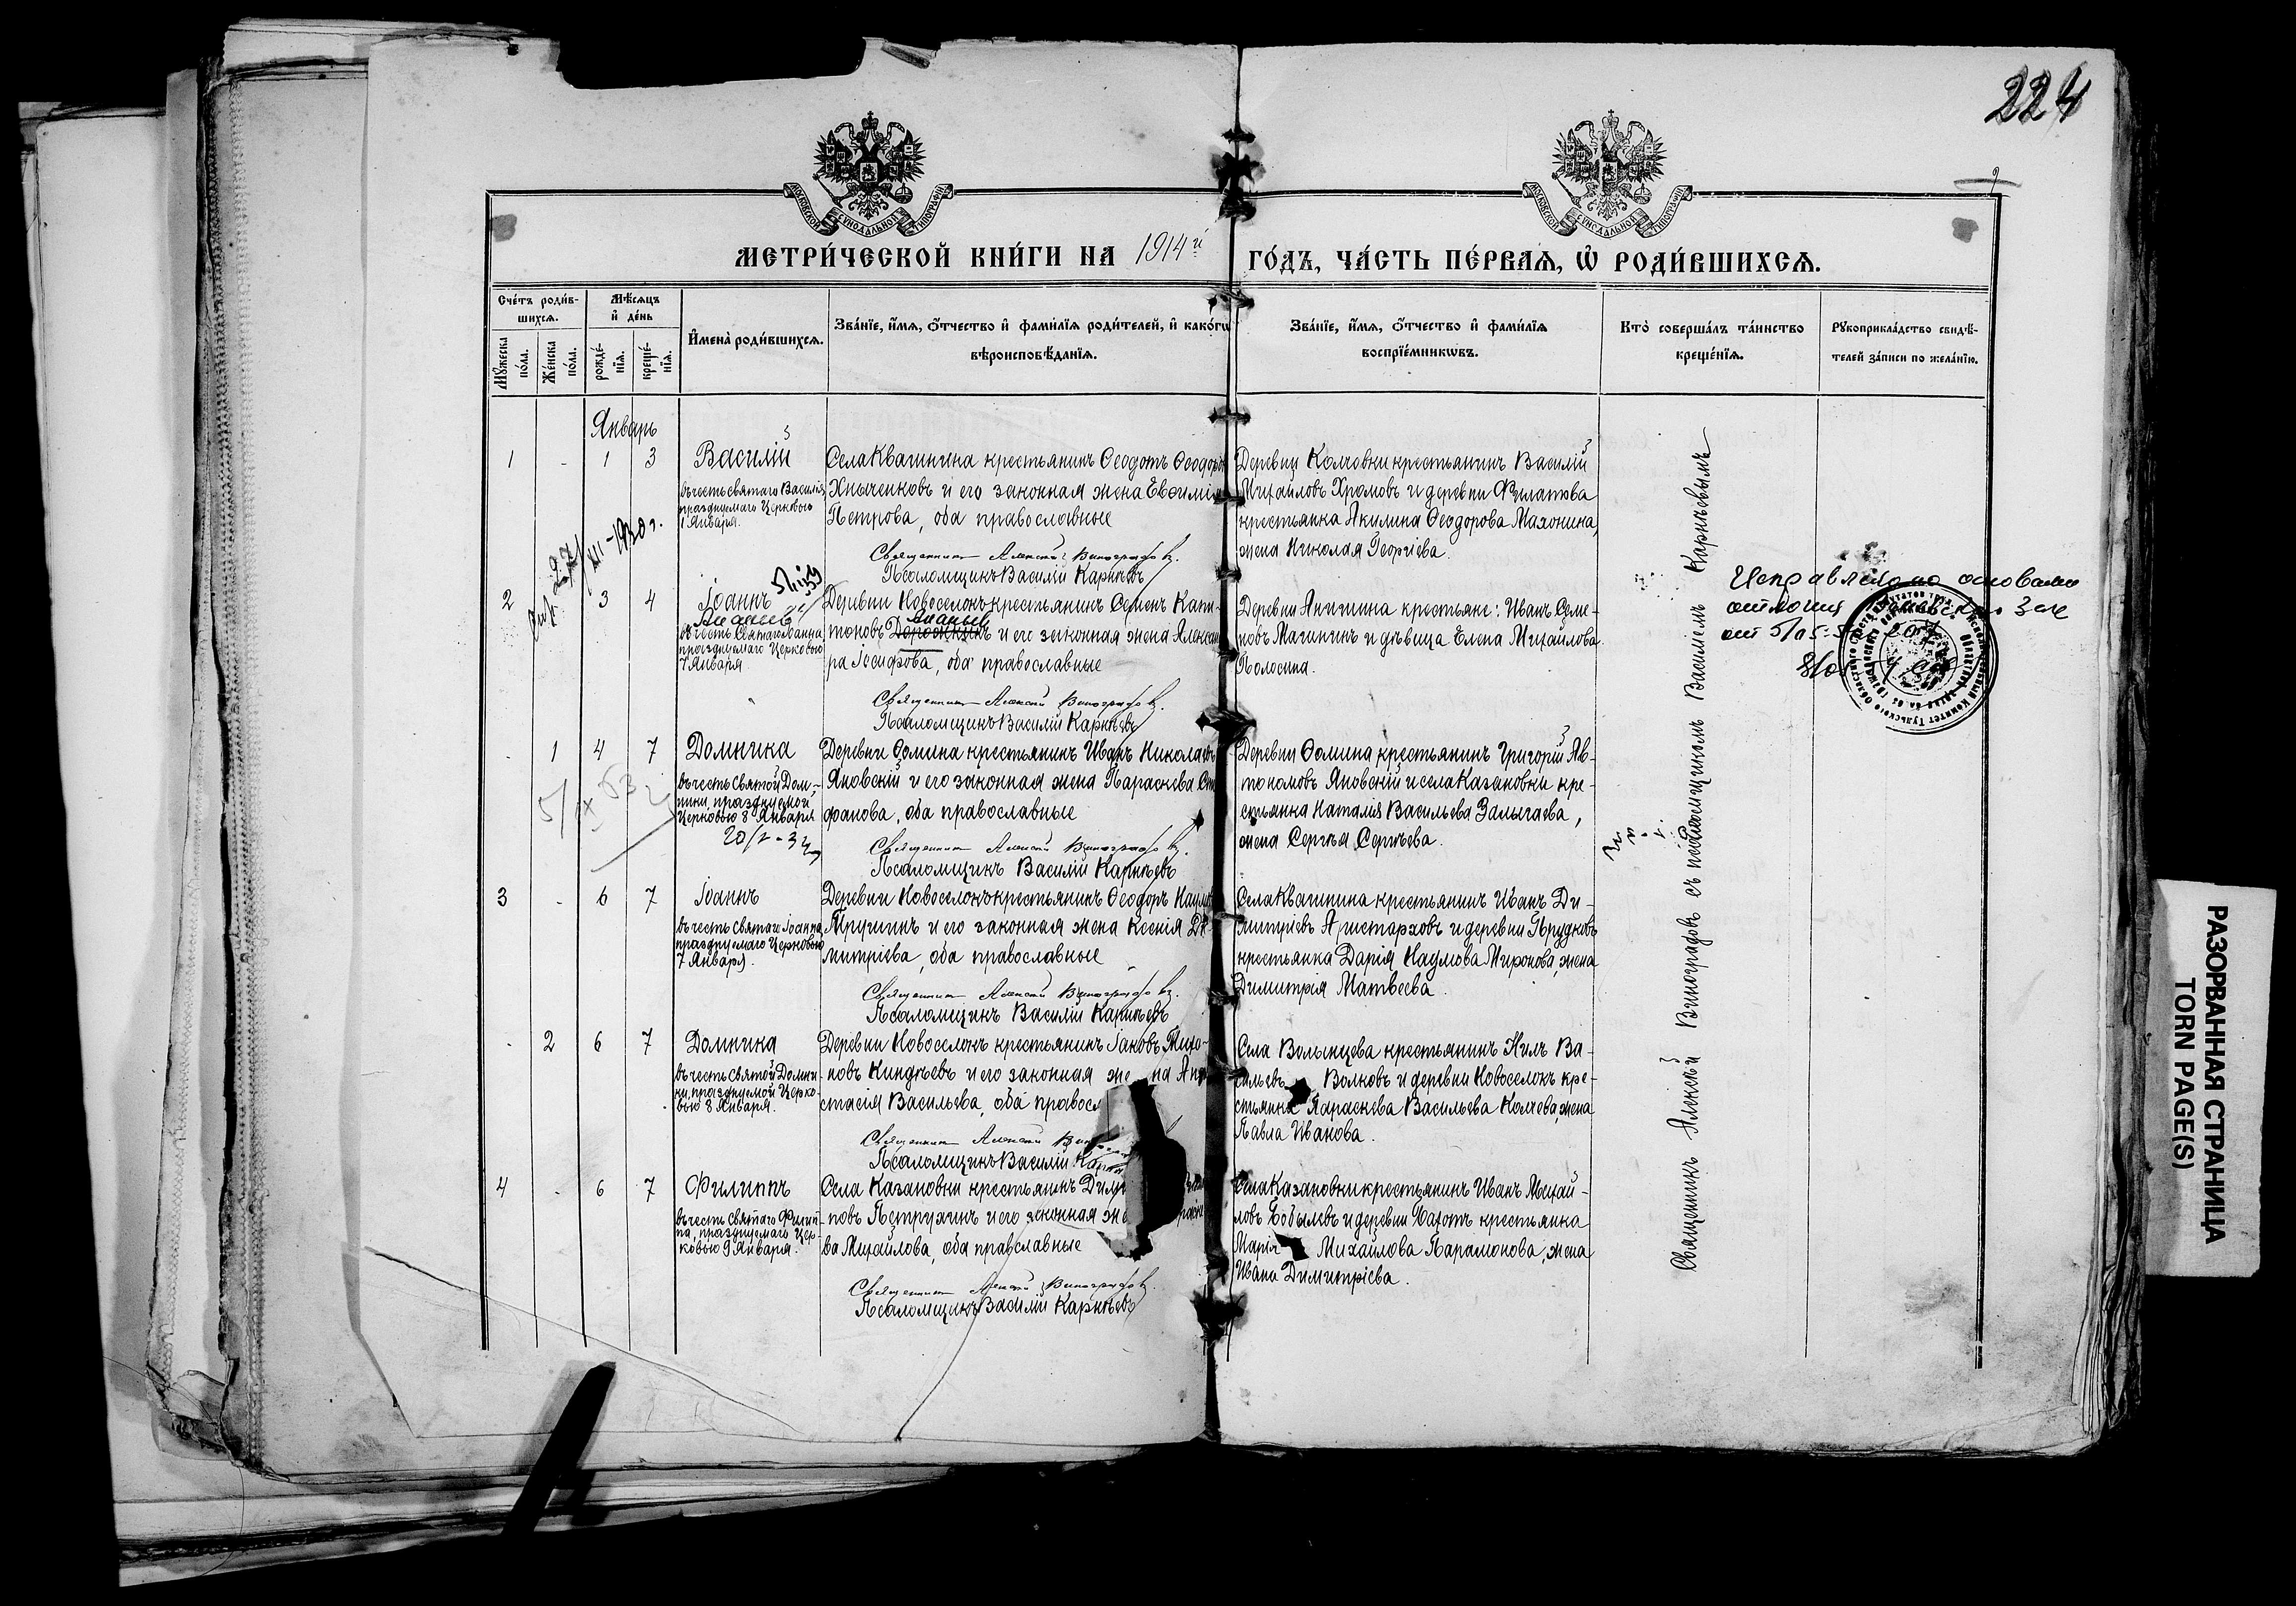 224
МОСКОВСКОЙ СѴНОДАЛЬНОЙ ТИПОГРАФІИ
МОСКОВСКОЙ СѴНОДАЛЬНОЙ ТИПОГРАФІИ
МЕТРИ́ЧЕСКОЙ КНИ́ГИ НА 1914й ГО́ДЪ, ЧА́СТЬ ПЕ́РВАѦ, Ѡ҆ РОДИ́ВШИХСѦ.
Сче́тъ роди́в-
шихсѧ.
Мꙋ́жеска по́ла.
Же́нска по́ла.
Мѣ́сѧцъ
и҆ де́нь
рожде́-
нїѧ.
креще́-
нїѧ.
И҆мена̀ роди́вшихсѧ.
Зва́нїе, и҆́мѧ, ѻ҆́тчество и҆ фами́лїѧ роди́телей, и҆ како́гѡ
вѣроисповѣ́данїѧ.
Зва́нїе, и҆́мѧ, ѻ҆́тчество и҆ фами́лїѧ
воспрїе́мникѡвъ.
Кто̀ соверша́лъ та́инство
креще́нїѧ.
Рꙋкоприкла́дство свидѣ́-
телей за́писи по жела́нїю.
Январь
1 - 1 3 Василій
въ честь святаго Василія,
празднуемаго Церковью
1 Января.
Села Квашнина крестьянинъ Ѳеодотъ Ѳеодоро
Хныченковъ и его законная жена Евѳимія
Петрова, оба православные
Священникъ Алексій Виноградовъ.
Псаломщикъ Василій Карнѣевъ
Деревни Колчовки крестьянинъ Василій
Михайловъ Хромовъ и деревни Филатова
крестьянка Акилина Ѳеодорова Махонина,
жена Николая Георгіева.
27/XII-1930 г.
2 3 4 Іоаннъ
въ честь Святаго Іоанна,
празднуемаго Церковью
7 Января
Деревни Новоселокъ крестьянинъ Семенъ Капи-
тоновъ и его законная жена Алексан
ра Іосифова, оба православные
Священникъ Алексій Виноградовъ.
Псаломщикъ Василій Карнѣевъ
Деревни Анишина крестьяне: Иванъ Семе-
новъ Магинъ и дѣвица Елена Михайлова
Полосина.
Исправлено на основании
- 1 4 7 Домника
въ честь Святой Дом-
ники, празднуемой
Церковью 8 Января
Деревни Ѳомина крестьянинъ Иванъ Николаевъ
Яновскій и его законная жена Параскева Сте
фанова, оба православные
Священникъ Алексій Виноградовъ.
Псаломщикъ Василій Карнѣевъ
Деревни Ѳомина крестьянинъ Григорій Ав-
тономовъ Яновскій и села Казановки кре-
стьянка Наталія Васильева Залыгаева,
жена Сергѣя Сергѣева.
3 - 6 7 Іоаннъ
въ честь Святаго Іоанна,
празднуемаго Церковью
7 Января.
Деревни Новоселокъ крестьянинъ Ѳеодоръ Наумовъ
Трушинъ и его законная жена Ксенія Ди-
митріева, оба православные
Священникъ Алексій Виноградовъ.
Псаломщикъ Василій Карнѣевъ
Села Квашнина крестьянинъ Иванъ Ди-
митріевъ Аристарховъ и деревни Прудковъ
крестьянка Дарія Наумова Миронова, жена
Димитрія Матвеева.
- 2 6 7 Домника
въ честь Святой Домни-
ки, празднуемой Церко-
вью 8 Января.
Деревни Новоселокъ крестьянинъ Іаковъ Тихо-
новъ Киндѣевъ и его законная жена Ана
стасія Васильева, оба правосл
Священникъ Алексій Вин
Псаломщикъ Василій Карн
Села Волынцева крестьянинъ Нилъ Ва-
сильевъ Волковъ и деревни Новоселокъ кре-
стьянка Параскева Васильева Колчева, жена
Павла Иванова.
4 - 6 7 Филиппъ
въ честь святаго Филип-
па, празднуемаго Цер-
ковью 9 Января.
Села Казановки крестьянинъ Дими
новъ Петрухинъ и его законная же
ва Михайлова, оба православные
Священникъ Алексій Виноградовъ.
Псаломщикъ Василій Карнѣевъ
Села Казановки крестьянинъ Иванъ Михай-
ловъ Бобылевъ и деревни Бахотъ крестьянка
Марія Михайлова Парамонова, жена
Ивана Димитріева.
Священникъ Алексій Виноградовъ съ псаломщикомъ Василіемъ Карнѣевымъ
РАЗОРВАННАЯ СТРАНИЦА
TORN PAGE(S)